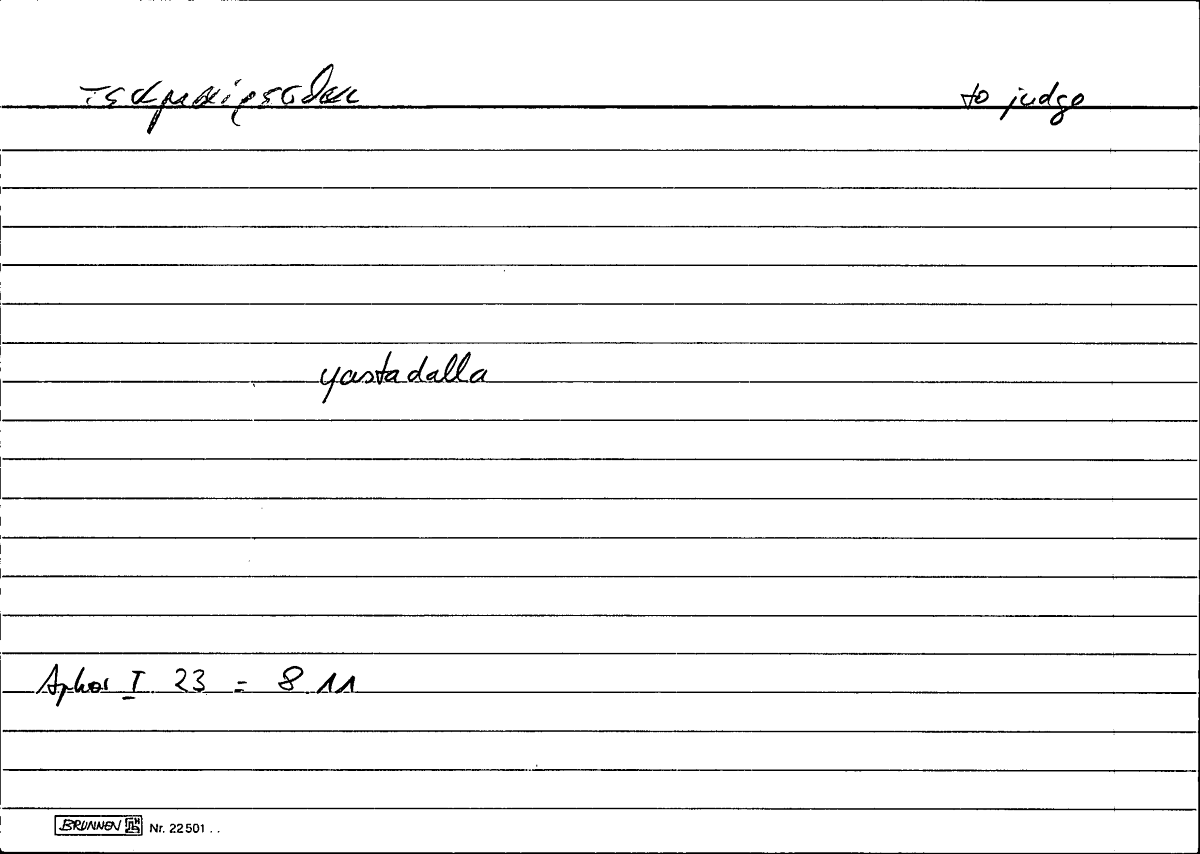 τεκμαίρεσθαι to judge
yastadalla
Aphor I 23 = 8 11
BRUNNEN Nr. 22501 ..